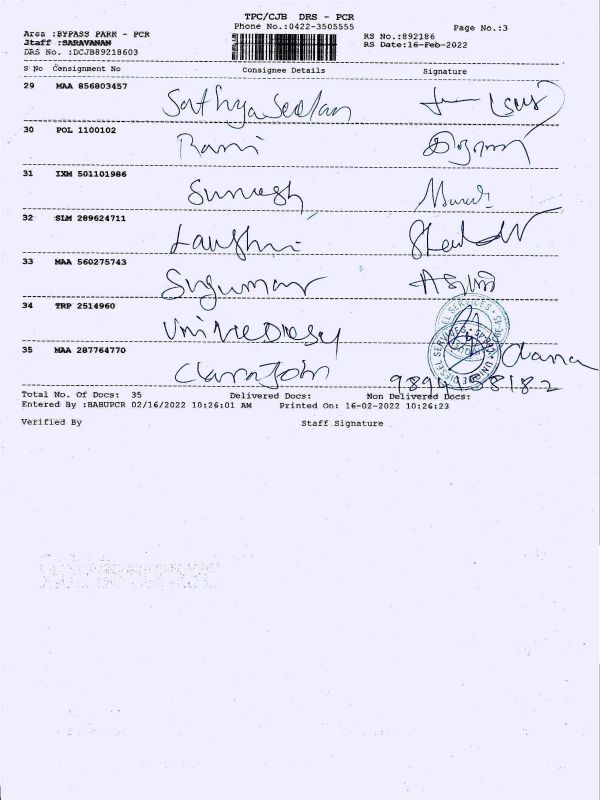 TPC/CJB DRS - PCR
Phone No.:0422-3505555
Page No.:3
Area :BYPASS PARK - PCR
RS No.:892186
Staff :SARAVANAN
RS Date:16-Feb-2022
DRS No. :DCJB89218603
S No Consignment No Consignee Details Signature
29 MAA 856803457
30 POL 1100102 Rani
31 IXM 501101986 Sumesh
32 SLM 289624711
33 MAA 560275743 Sugumar
34 TRP 2514960
35 MAA 287764770 Clara John Clara
Total No. Of Docs: 35 Delivered Docs: Non Delivered Docs:
Entered By :BABUPCR 02/16/2022 10:26:01 AM Printed On: 16-02-2022 10:26:23
Verified By Staff Signature